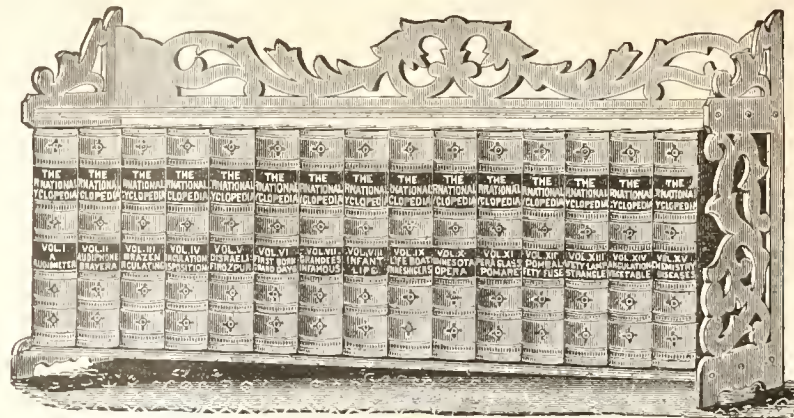 THE
RNATIONAL
YCLOPEDIA
VOL.I
A
AUDIOMETER
THE
RNATIONAL
YCLOPEDIA
VOL.II
AUDIPHONE
BRAVERA
THE
RNATIONAL
YCLOPEDIA
VOL.III
BRAZEN
IRCULATING
THE
RNATIONAL
YCLOPEDIA
VOL.IV
IRCULATION
ISPOSITION
THE
RNATIONAL
YCLOPEDIA
VOL.V
DISRAELI
FIROZPUR
THE
RNATIONAL
YCLOPEDIA
VOL.VI
FIRST BORN
GRAND DAYS
THE
RNATIONAL
YCLOPEDIA
VOL.VII
GRANDEES
INFAMOUS
THE
RNATIONAL
YCLOPEDIA
VOL.VIII
INFANT
LIPE
THE
RNATIONAL
YCLOPEDIA
VOL.IX
MINNESINGERS
THE
RNATIONAL
YCLOPEDIA
VOL.X
MINNESOTA
OPERA
THE
RNATIONAL
YCLOPEDIA
VOL.XI
PERA GLASS
POMARE
THE
RNATIONAL
YCLOPEDIA
VOL.XII
POMBAL
FETY FUSE
THE
RNATIONAL
YCLOPEDIA
VOL.XIII
FETY LAMP
STRANGLES
THE
RNATIONAL
YCLOPEDIA
VOL.XIV
THE
RNATIONAL
YCLOPEDIA
VOL.XV
HEMISTRY
DISEASES